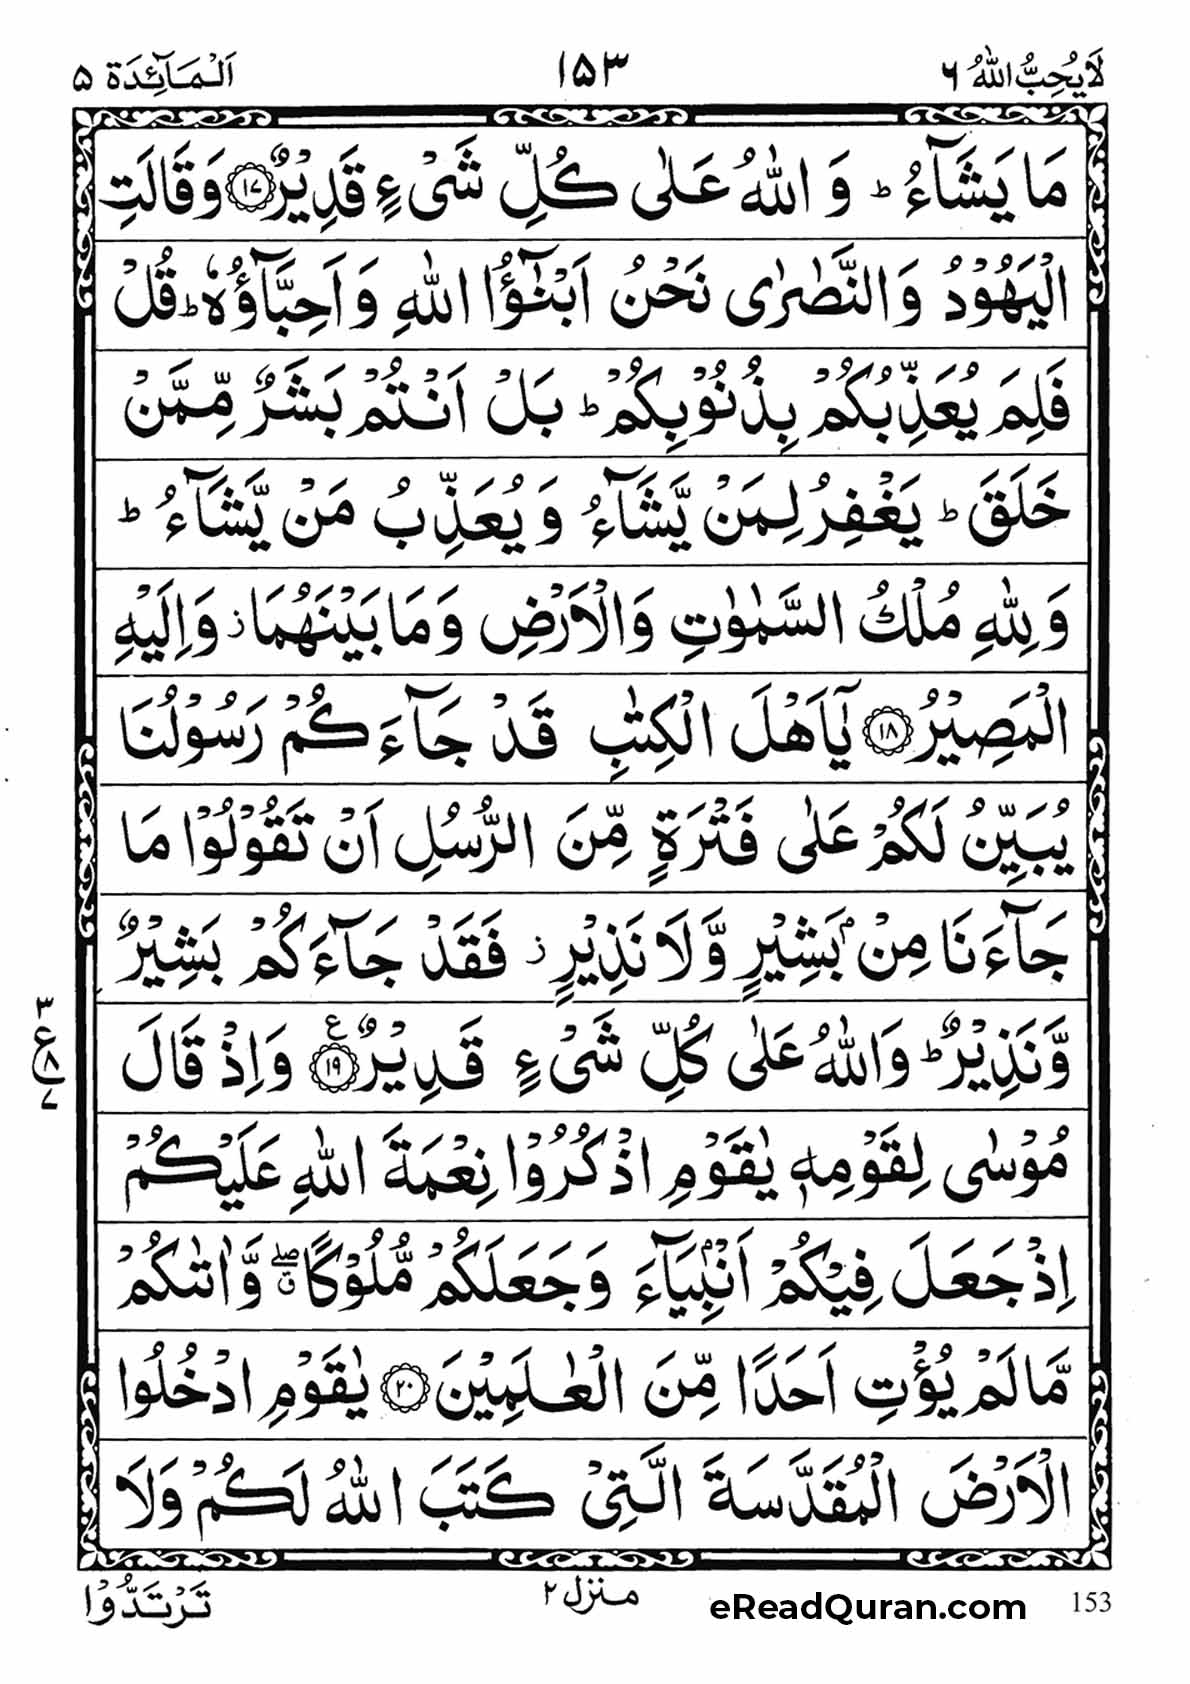 لَا يُحِبُّ اللّٰهُ ٦ ١٥٣ اَلْمَآئِدَة ٥
مَا يَشَآءُ ؕ وَ اللّٰهُ عَلٰى كُلِّ شَىْءٍ قَدِيْرٌ ١٧ وَقَالَتِ
الْيَهُوْدُ وَالنَّصٰرٰى نَحْنُ اَبْنٰٓؤُا اللّٰهِ وَاَحِبَّآؤُهٗ ؕ قُلْ
فَلِمَ يُعَذِّبُكُمْ بِذُنُوْبِكُمْ ؕ بَلْ اَنْتُمْ بَشَرٌ مِّمَّنْ
خَلَقَ ؕ يَغْفِرُ لِمَنْ يَّشَآءُ وَيُعَذِّبُ مَنْ يَّشَآءُ ؕ
وَلِلّٰهِ مُلْكُ السَّمٰوٰتِ وَالْاَرْضِ وَمَا بَيْنَهُمَا ز وَاِلَيْهِ
الْمَصِيْرُ ١٨ يٰۤاَهْلَ الْكِتٰبِ قَدْ جَآءَكُمْ رَسُوْلُنَا
يُبَيِّنُ لَكُمْ عَلٰى فَتْرَةٍ مِّنَ الرُّسُلِ اَنْ تَقُوْلُوْا مَا
جَآءَنَا مِنْۢ بَشِيْرٍ وَّلَا نَذِيْرٍ ز فَقَدْ جَآءَكُمْ بَشِيْرٌ
وَّنَذِيْرٌ ؕ وَاللّٰهُ عَلٰى كُلِّ شَىْءٍ قَدِيْرٌ ١٩ ع وَاِذْ قَالَ
٣ ع ٨ ٧
مُوْسٰى لِقَوْمِهٖ يٰقَوْمِ اذْكُرُوْا نِعْمَةَ اللّٰهِ عَلَيْكُمْ
اِذْ جَعَلَ فِيْكُمْ اَنْۢبِيَآءَ وَجَعَلَكُمْ مُّلُوْكًا ۖق وَّاٰتٰىكُمْ
مَّا لَمْ يُؤْتِ اَحَدًا مِّنَ الْعٰلَمِيْنَ ٢٠ يٰقَوْمِ ادْخُلُوا
الْاَرْضَ الْمُقَدَّسَةَ الَّتِىْ كَتَبَ اللّٰهُ لَكُمْ وَلَا
153 eReadQuran.com منزل ٢ تَرْتَدُّوْا